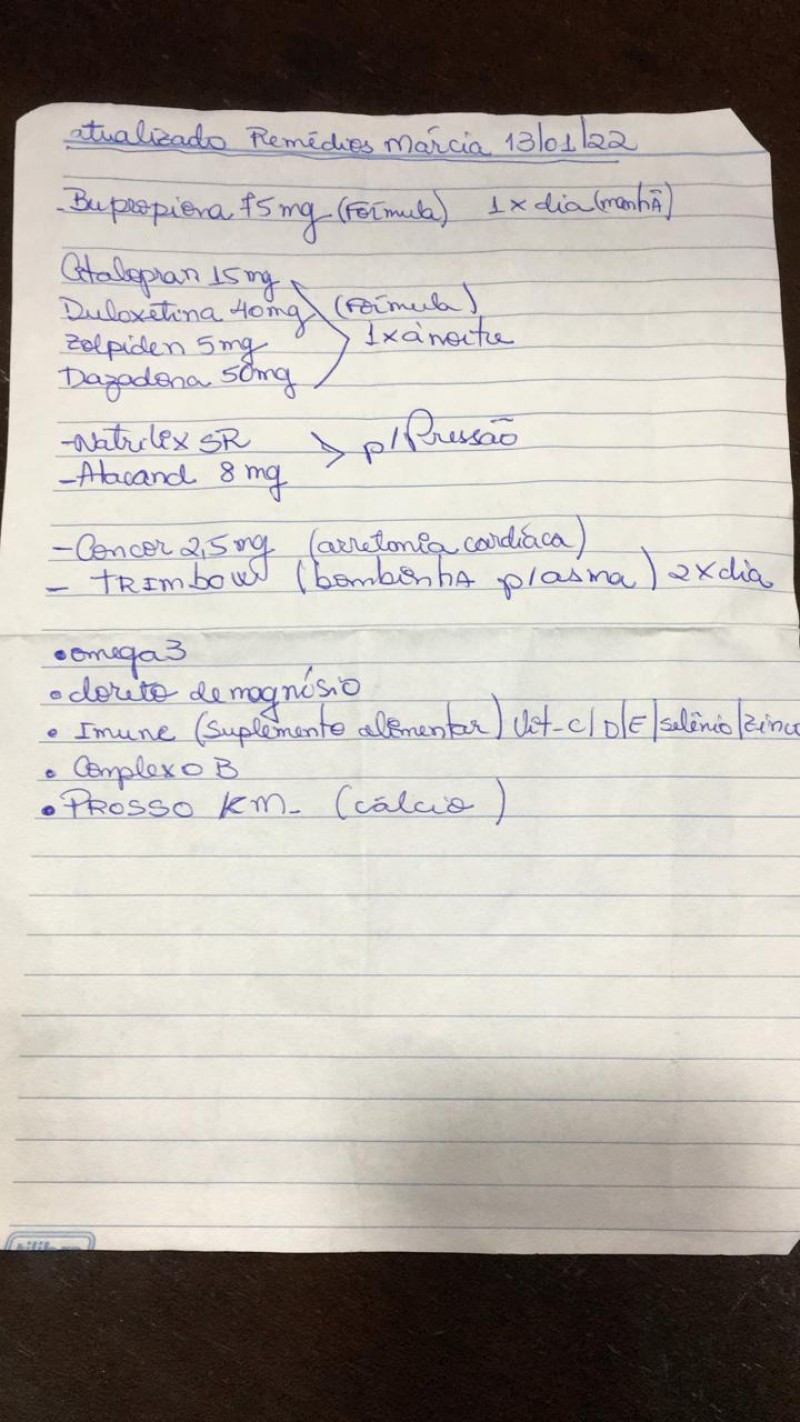 atualizado Remédios Márcia 13/01/22
- Bupropiona 75mg (Fórmula) 1x dia (manhã)
Citalopran 15mg
Duloxetina 40mg (Fórmula)
Zolpiden 5mg 1x à noite
Dazadona 50mg
- Natrilix SR
- Atacand 8 mg p/ Pressão
- Concor 2,5mg (arretmia cardíaca)
- TRIMbow (bombinha p/asma) 2x dia
• omega 3
• cloreto de magnésio
• Imune (suplemento alimentar) Vit-C/D/E/selênio/zinco
• Complexo B
• PROSSO KM- (cálcio)